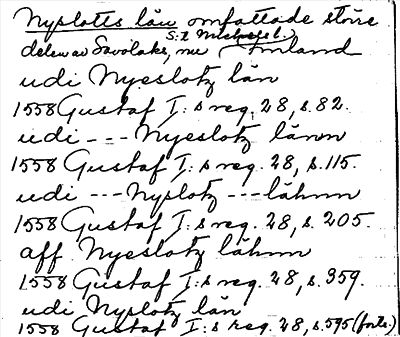 Nyslotts län omfattade större
delen av Savolaks, nu S:t Michels l. Finland
udi Nyeslotz län
1558 Gustaf I:s reg. 28, s. 82.
udi --- Nyeslotz länn
1558 Gustaf I:s reg. 28, s. 115.
udi --- Nyslotz --- lähnn
1558 Gustaf I:s reg. 28, s. 205.
aff Nyeslotz lähnn
1558 Gustaf I:s reg. 28, s. 359.
udi Nyslotz län
1558 Gustaf I:s reg. 28, s. 595 (forts.)